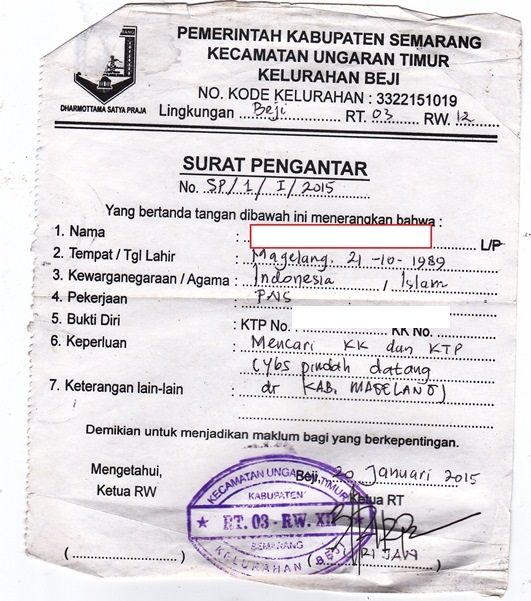 PEMERINTAH KABUPATEN SEMARANG
KECAMATAN UNGARAN TIMUR
KELURAHAN BEJI
NO. KODE KELURAHAN : 3322151019
DHARMOTTAMA SATYA PRAJA
Lingkungan Beji RT. 03 RW. 12
SURAT PENGANTAR
No. SP/1/I/2015
Yang bertanda tangan dibawah ini menerangkan bahwa :
1. Nama : L/P
2. Tempat / Tgl Lahir : Magelang. 21-10-1989
3. Kewarganegaraan / Agama : Indonesia, Islam
4. Pekerjaan : PNS
5. Bukti Diri : KTP No. KK No.
6. Keperluan : Mencari KK dan KTP
(Ybs pindah datang
7. Keterangan lain-lain : dr KAB. MAGELANG)
Demikian untuk menjadikan maklum bagi yang berkepentingan.
Beji, 20 Januari 2015
Mengetahui,
Ketua RW
Ketua RT
KECAMATAN UNGARAN TIMUR
KABUPATEN
RT. 03 - RW. XII
SEMARANG
KELURAHAN BEJI